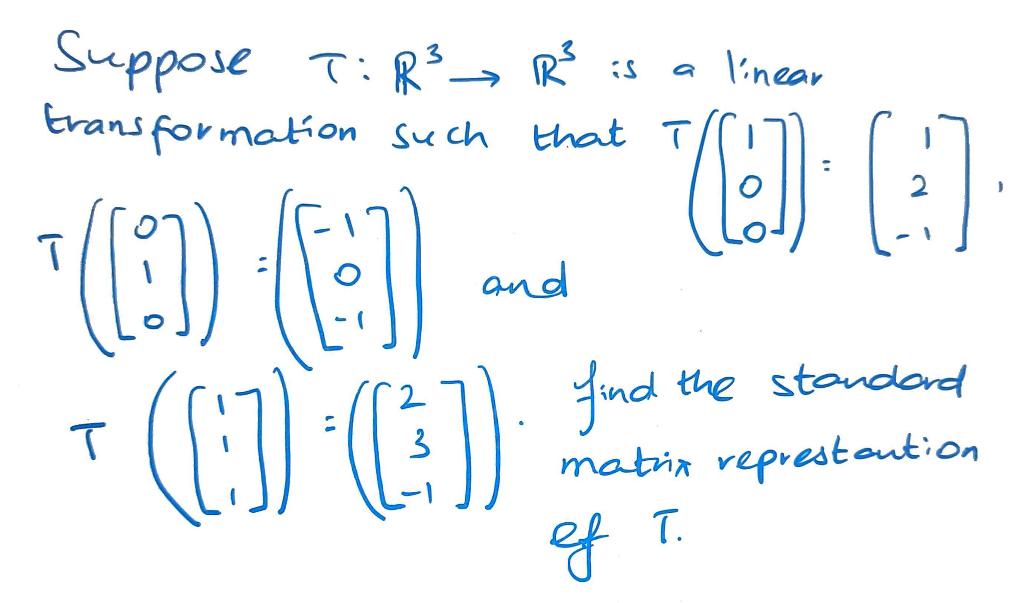 Suppose T: ℝ³ → ℝ³ is a linear
transformation such that T([1 0 0]) = [1 2 -1],
T([0 1 0]) = ([-1 0 -1]) and
T([1 1 1]) = ([2 3 -1]). find the standard
matrix represtaution
ef T.